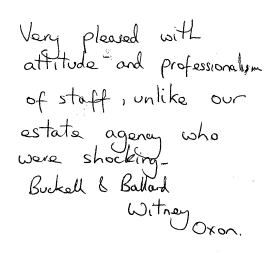 Very pleased with
attitude - and professionalism
of staff, unlike our
estate agency who
were shocking -
Buckell & Ballard
Witney
Oxon.